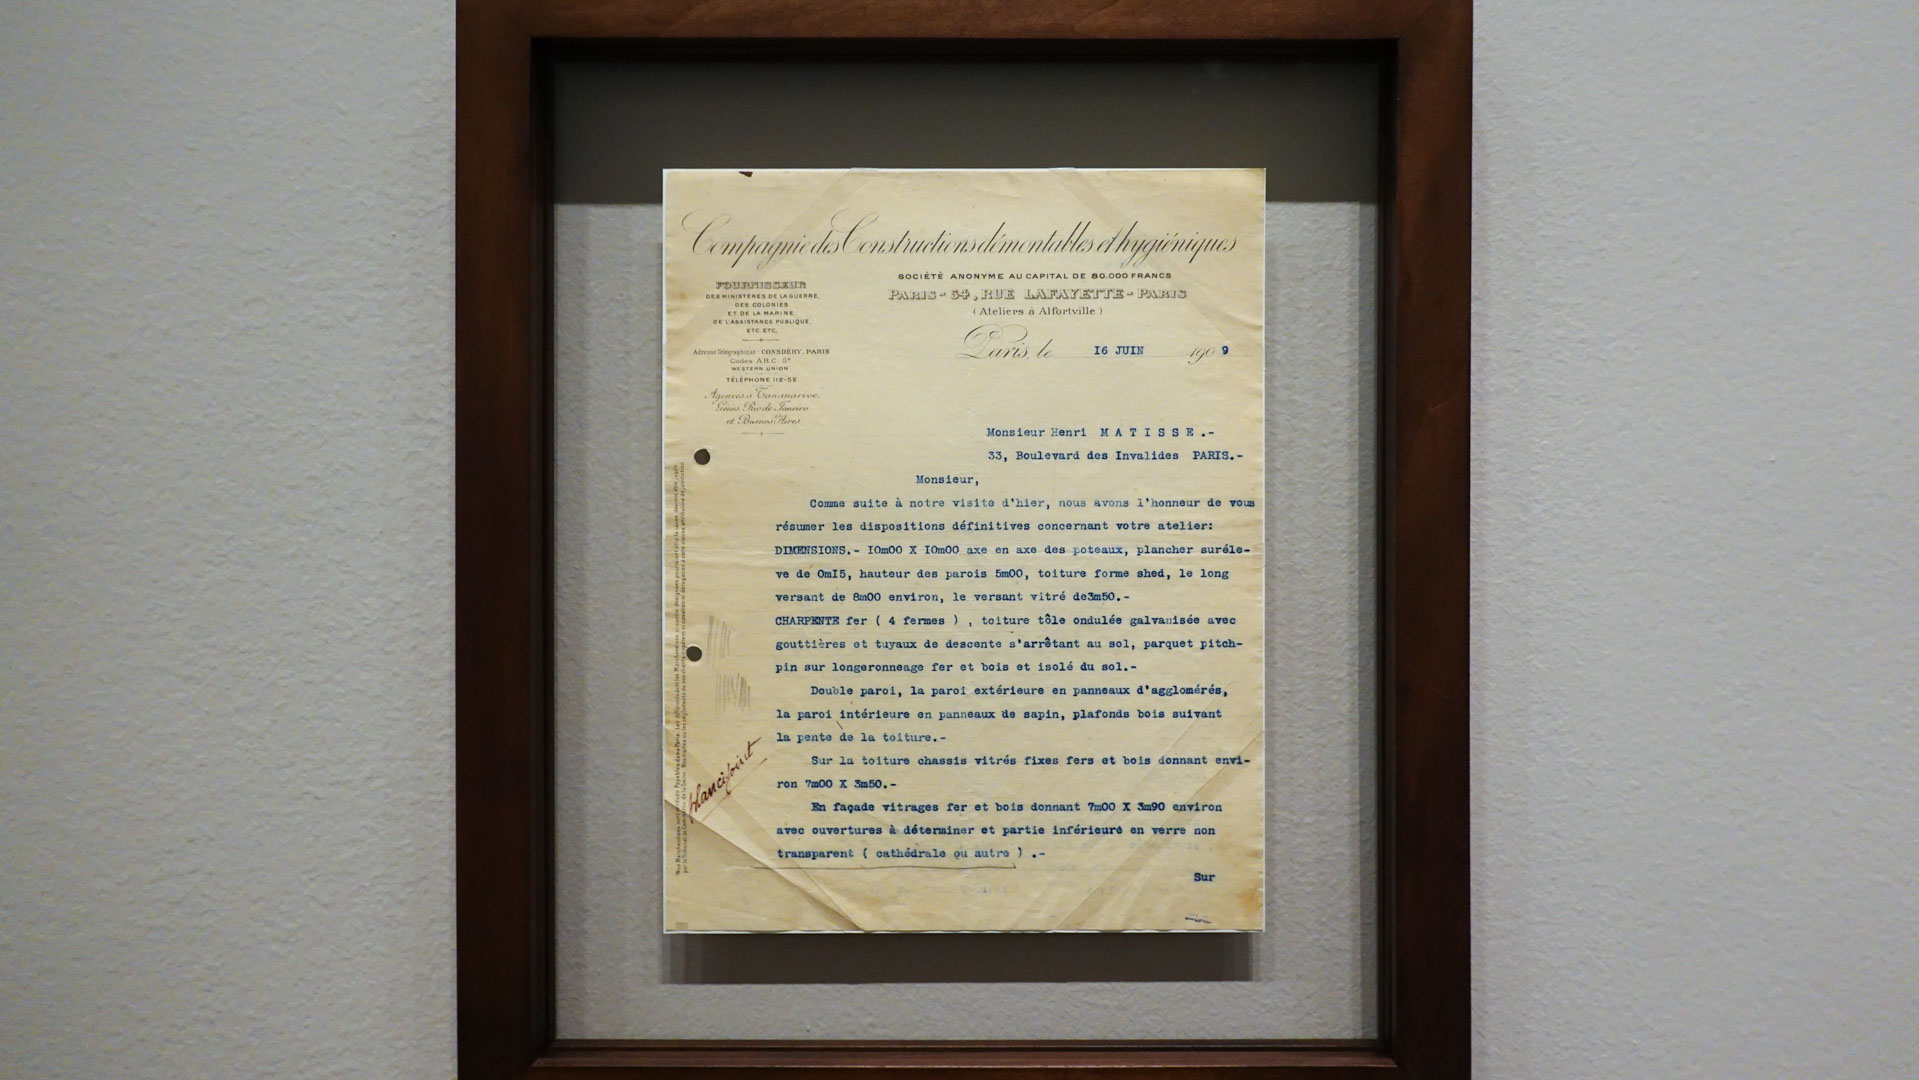 Compagnie des Constructions démontables et hygiéniques
SOCIÉTÉ ANONYME AU CAPITAL DE 80.000 FRANCS
PARIS - 54, RUE LAFAYETTE - PARIS
(Ateliers à Alfortville)
FOURNISSEUR
DES MINISTÈRES DE LA GUERRE,
DES COLONIES
ET DE LA MARINE
DE L'ASSISTANCE PUBLIQUE,
ETC. ETC.
Adresse Télégraphique: CONSDÉHY. PARIS
Codes A.B.C. 5e
WESTERN UNION
TÉLÉPHONE 112-52
Agences à Tananarive,
Gênes, Rio de Janeiro
et Buenos Aires
Paris, le 16 JUIN 1909
Monsieur Henri M A T I S S E .-
33, Boulevard des Invalides PARIS.-
Monsieur,
Comme suite à notre visite d'hier, nous avons l'honneur de vous
résumer les dispositions définitives concernant votre atelier:
DIMENSIONS.- IOmOO X IOmOO axe en axe des poteaux, plancher suréle-
ve de OmI5, hauteur des parois 5mOO, toiture forme shed, le long
versant de 8mOO environ, le versant vitré de3m50.-
CHARPENTE fer ( 4 fermes ) , toiture tôle ondulée galvanisée avec
gouttières et tuyaux de descente s'arrêtant au sol, parquet pitch-
pin sur longeronneage fer et bois et isolé du sol.-
Double paroi, la paroi extérieure en panneaux d'agglomérés,
la paroi intérieure en panneaux de sapin, plafonds bois suivant
la pente de la toiture.-
Sur la toiture chassis vitrés fixes fers et bois donnant envi-
ron 7mOO X 3m50.-
En façade vitrages fer et bois donnant 7mOO X 3m90 environ
avec ouvertures à déterminer et partie inférieure en verre non
transparent ( cathédrale ou autre ) .-
Sur